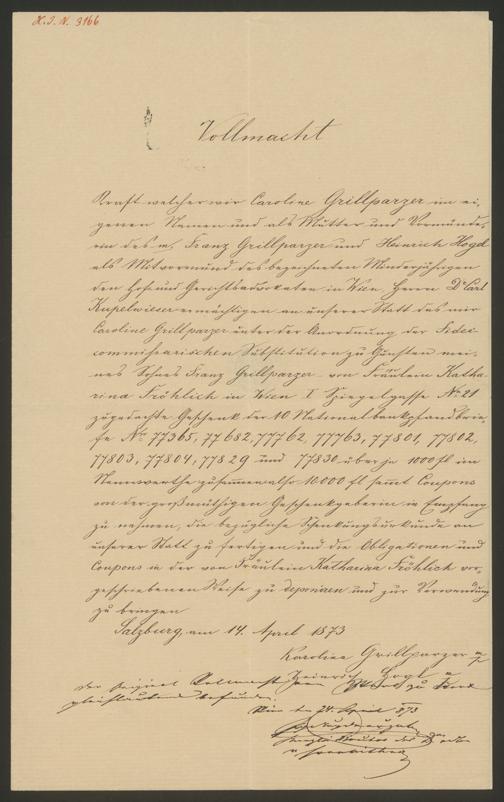 H. I. N. 3166
Vollmacht
Kraft welcher wir Caroline Grillparzer im ei-
genen Namen und als Mutter und Vormünde-
rin des m. Franz Grillparzer und Heinrich Hogl
als Mitvormund des bezeichneten Minderjährigen
den Hof und Gerichtsadvokaten in Wien Herrn Dr Carl
Kupelwieser ermächtigen an unserer Statt das mir
Caroline Grillparzer unter der Anordnung der Fidei-
commissarischen Substitution zu Gunsten mei-
nes Sohnes Franz Grillparzer von Fräulein Katha-
rina Fröhlich in Wien I Spiegelgasse No 21
zugedachte Geschenk der 10 Nationalbankpfandbrie-
fe No 77365, 77682, 77762, 77763, 77801, 77802,
77803, 77804, 77829 und 77830 über je 1000 fl im
Nennwerthe zusammen also 10.000 fl samt Coupons
von der großmüthigen Geschenkgeberin in Empfang
zu nehmen, die bezügliche Schenkungsurkunde an
unserer Statt zu fertigen und die Obligationen und
Coupons in der von Fräulein Katharina Fröhlich vor-
geschriebenen Weise zu deponiren und zur Verwendung
zu bringen
Salzburg am 14. April 1873
Karoline Grillparzer
Heinrich Hogl
der Original Vollmacht
gleichlautend befunden.
Wien den 24. April 1873